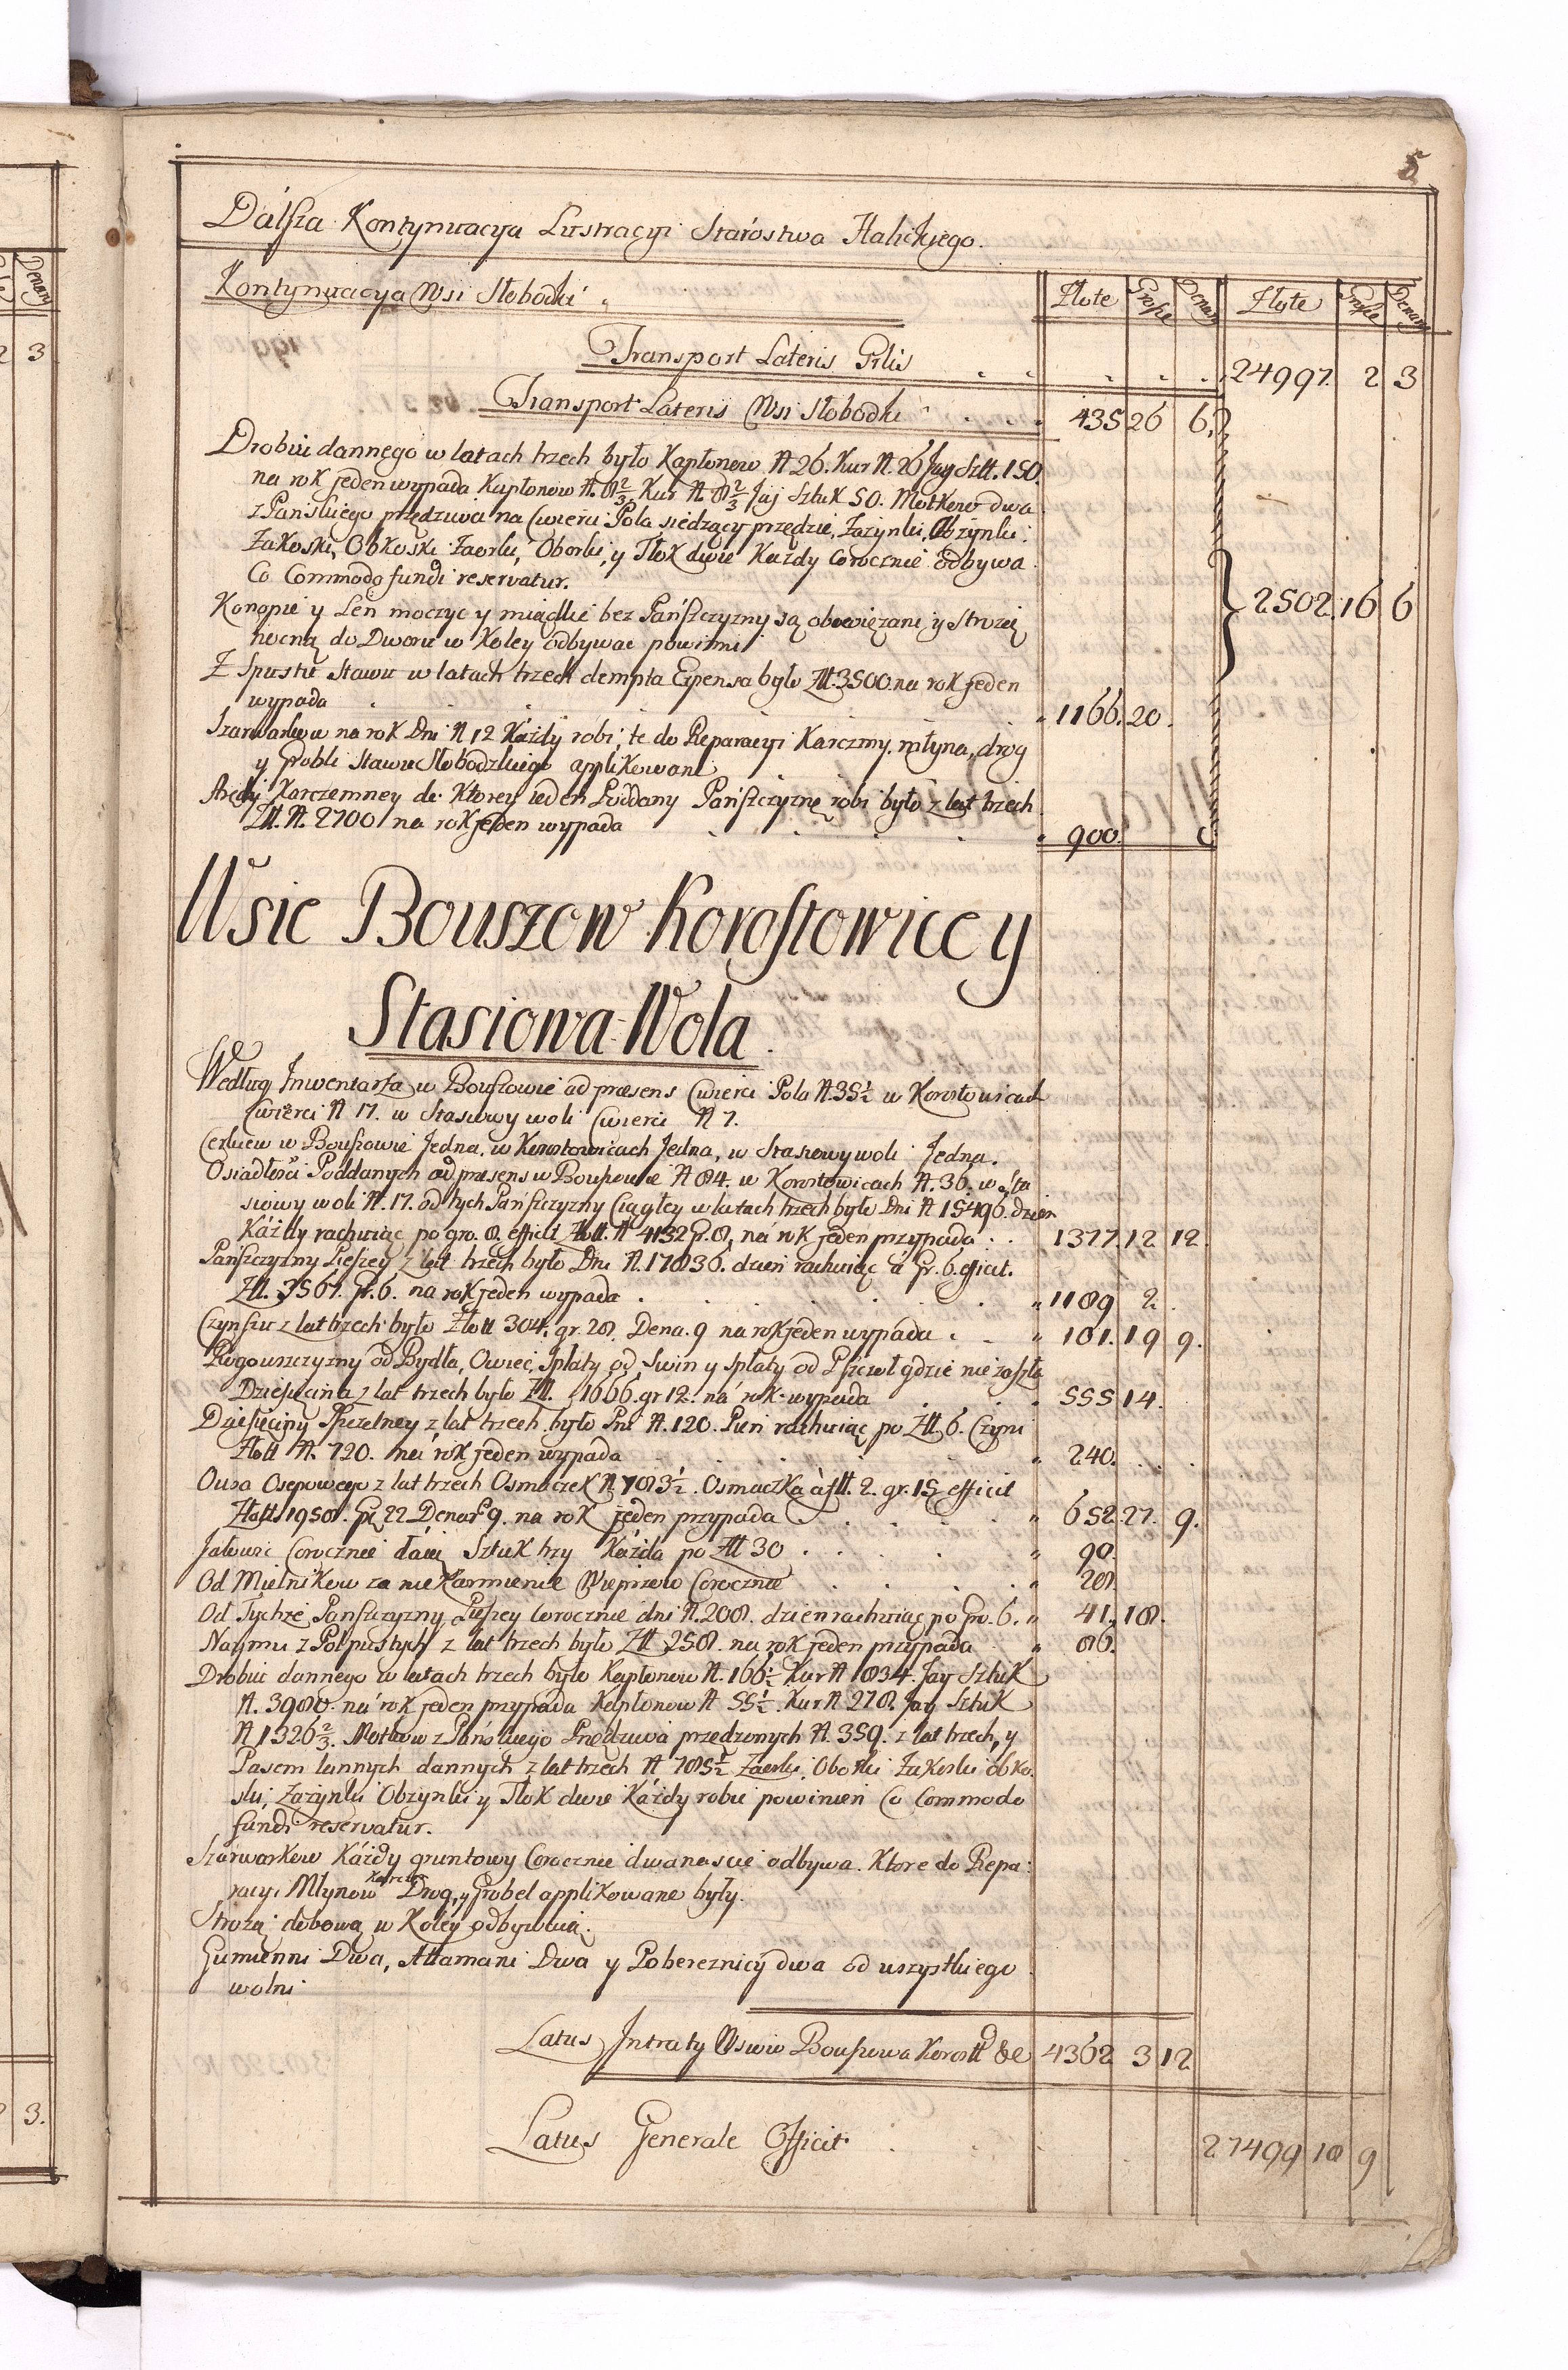 5
Dalsza Kontynuacya Lustracyi Starostwa Halickiego.
Kontynuacya Wsi Słobodki
Złote Grosze Denary Złote Grosze Denary
Transport Lateris Gnlis 24997. 2 3
Transport Lateris Wsi Słobodki 435 26 6.
Drobiu dannego w latach trzech było Kapłonow N 26. Kur N. 26 Jay Sztt. 150.
na rok jeden wypada Kapłonow N. 8 2/3. Kur N. 8 2/3 Jaj Sztuk 50. Motkow dwa
z Pańskiego przędziwa na Cwierci Pola siedzący przędzie, Zazynki, Obzynki.
Zakoski, Obkoski Zaorki, Oborki, y Tłok dwie Każdy Corocznie odbywa.
Co Commodo fundi reservatur.
Konopie y Len moczyc y miądlic bez Pańszczyzny są obowięzani, y Strożą
nocną do Dworu w Koley odbywac powinni 2502. 16 6
Z Spustu Stawu w latach trzech dempta Expensa było Ztt. 3500 na rok jeden
wypada 1166. 20.
Szarwarkow na rok Dni N 12 Każdy robi, te do Reparacyi Karczmy, młyna, drog
y Grobli Stawu Słobodzkiego applikowane
Arędy Karczemney do Ktorey ieden Poddany Pańszczyznę robi było z lat trzech
Ztt. N. 2700 na rok jeden wypada 900.
Wsie Bouszow Korostowice y
Stasiowa Wola.
Według Inwentarza w Bouszowie ad præsens Cwierci Pola N. 35 1/2 w Korostowicach
Cwierci N 17. w Stasiowy woli Cwierci N 7.
Cerkiew w Bouszowie Jedna, w Korostowicach Jedna, w Stasiowy woli Jedna.
Osiadłości Poddanych ad præsens w Bouszowie N 84. w Korostowicach N. 36. w Sta
siowy woli N. 17. od tych Pańszczyzny Ciągłey w latach trzech było Dni N 15496. dzień
Każdy rachuiąc po gro. 8. efficit Złott. N 4132 Gr. 8, na rok jeden przypada 1377. 12 12.
Pańszczyzny Pieszey z lat trzech było Dni N. 17836. dzień rachuiąc a Gr. 6. efficit.
Ztt. 3567. Gr. 6. na rok jeden wypada 1189 2.
Czynszu z lat trzech było Złott 304. gr. 28. Dena. 9 na rok jeden wypada 101. 19 9.
Rogowszczyzny od Bydła, Owiec, Spłaty od Swin y spłaty od Pszczoł gdzie nie zaszła
Dziesięcina z lat trzech było Ztt. 1666. gr 12. na rok wypada 555 14.
Dziesięciny Pszczelney z lat trzech było Pni N. 120. Pień rachuiąc po Ztt 6. Czyni
Złott N. 720. na rok jeden wypada 240.
Owsa Osepowego z lat trzech Osmaczek N 783 1/2. Osmaczka a Ztt. 2. gr. 15 efficit
Złott 1958. Gr. 22 Denar 9. na rok jeden przypada 652. 27. 9.
Jałowic Corocznie daią Sztuk trzy Każda po Ztt 30 90.
Od Mielnikow za nie Karmienie Wieprzow Corocznie 28.
Od Tychże Pańszczyzny Pieszey Corocznie dni N. 208. dzien rachuiąc po Gro. 6. 41. 18.
Naymu z Pol pustych z lat trzech było Ztt 258. na rok jeden przypada 86.
Drobiu dannego w latach trzech było Kapłonow N. 166 1/2 Kur N 834. Jay Sztuk
N. 3980. na rok jeden przypada Kapłonow N 55 1/2. Kur N 278. Jay Sztuk
N 1326 2/3. Motkow z Pańskiego Przędziwa przędzonych N. 359. z lat trzech, y
Pasem lannych dannych z lat trzech N 785 1/2 Zaorki, Oborki Zakoski obko
ski, Zazynki Obzynki y Tłok dwie Każdy robic powinien Co Commodo
fundi reservatur.
Szarwarkow Każdy gruntowy Corocznie dwanascie odbywa. Ktore do Repa:
racyi Młynow Karczem Drog, y Grobel applikowane były.
Strożą dobową w Koley odbywaią.
Gumienni Dwa, Attamani Dwa y Pobereznicy dwa od wszystkiego
wolni
Latus Intraty Wsiow Bouszowa Korostt &c 4362 3 12
Latus Generale Efficit 27499 18 9